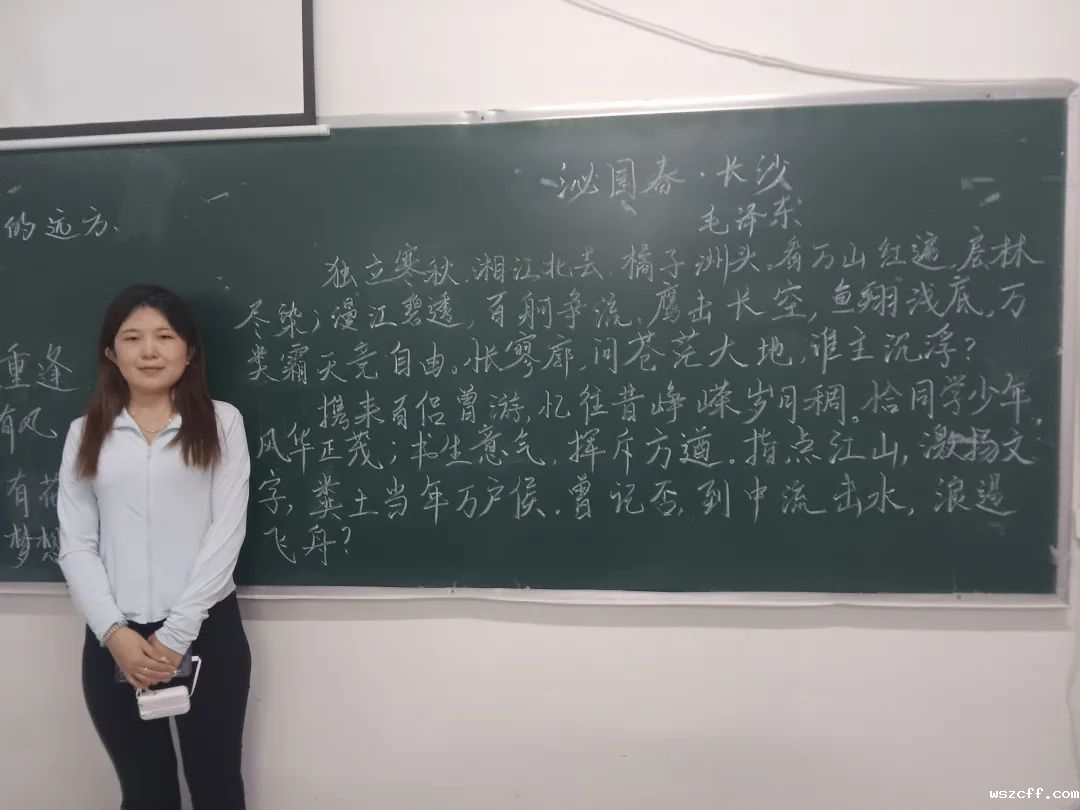 的远方、
重逢
有风
有花
梦想
泌园春·长沙
毛泽东
独立寒秋,湘江北去,橘子洲头。看万山红遍,层林
尽染;漫江碧透,百舸争流。鹰击长空,鱼翔浅底,万
类霜天竞自由。怅寥廓,问苍茫大地,谁主沉浮?
携来百侣曾游,忆往昔峥嵘岁月稠。恰同学少年,
风华正茂;书生意气,挥斥方遒。指点江山,激扬文
字,粪土当年万户侯。曾记否,到中流击水,浪遏
飞舟?
wszcff.com